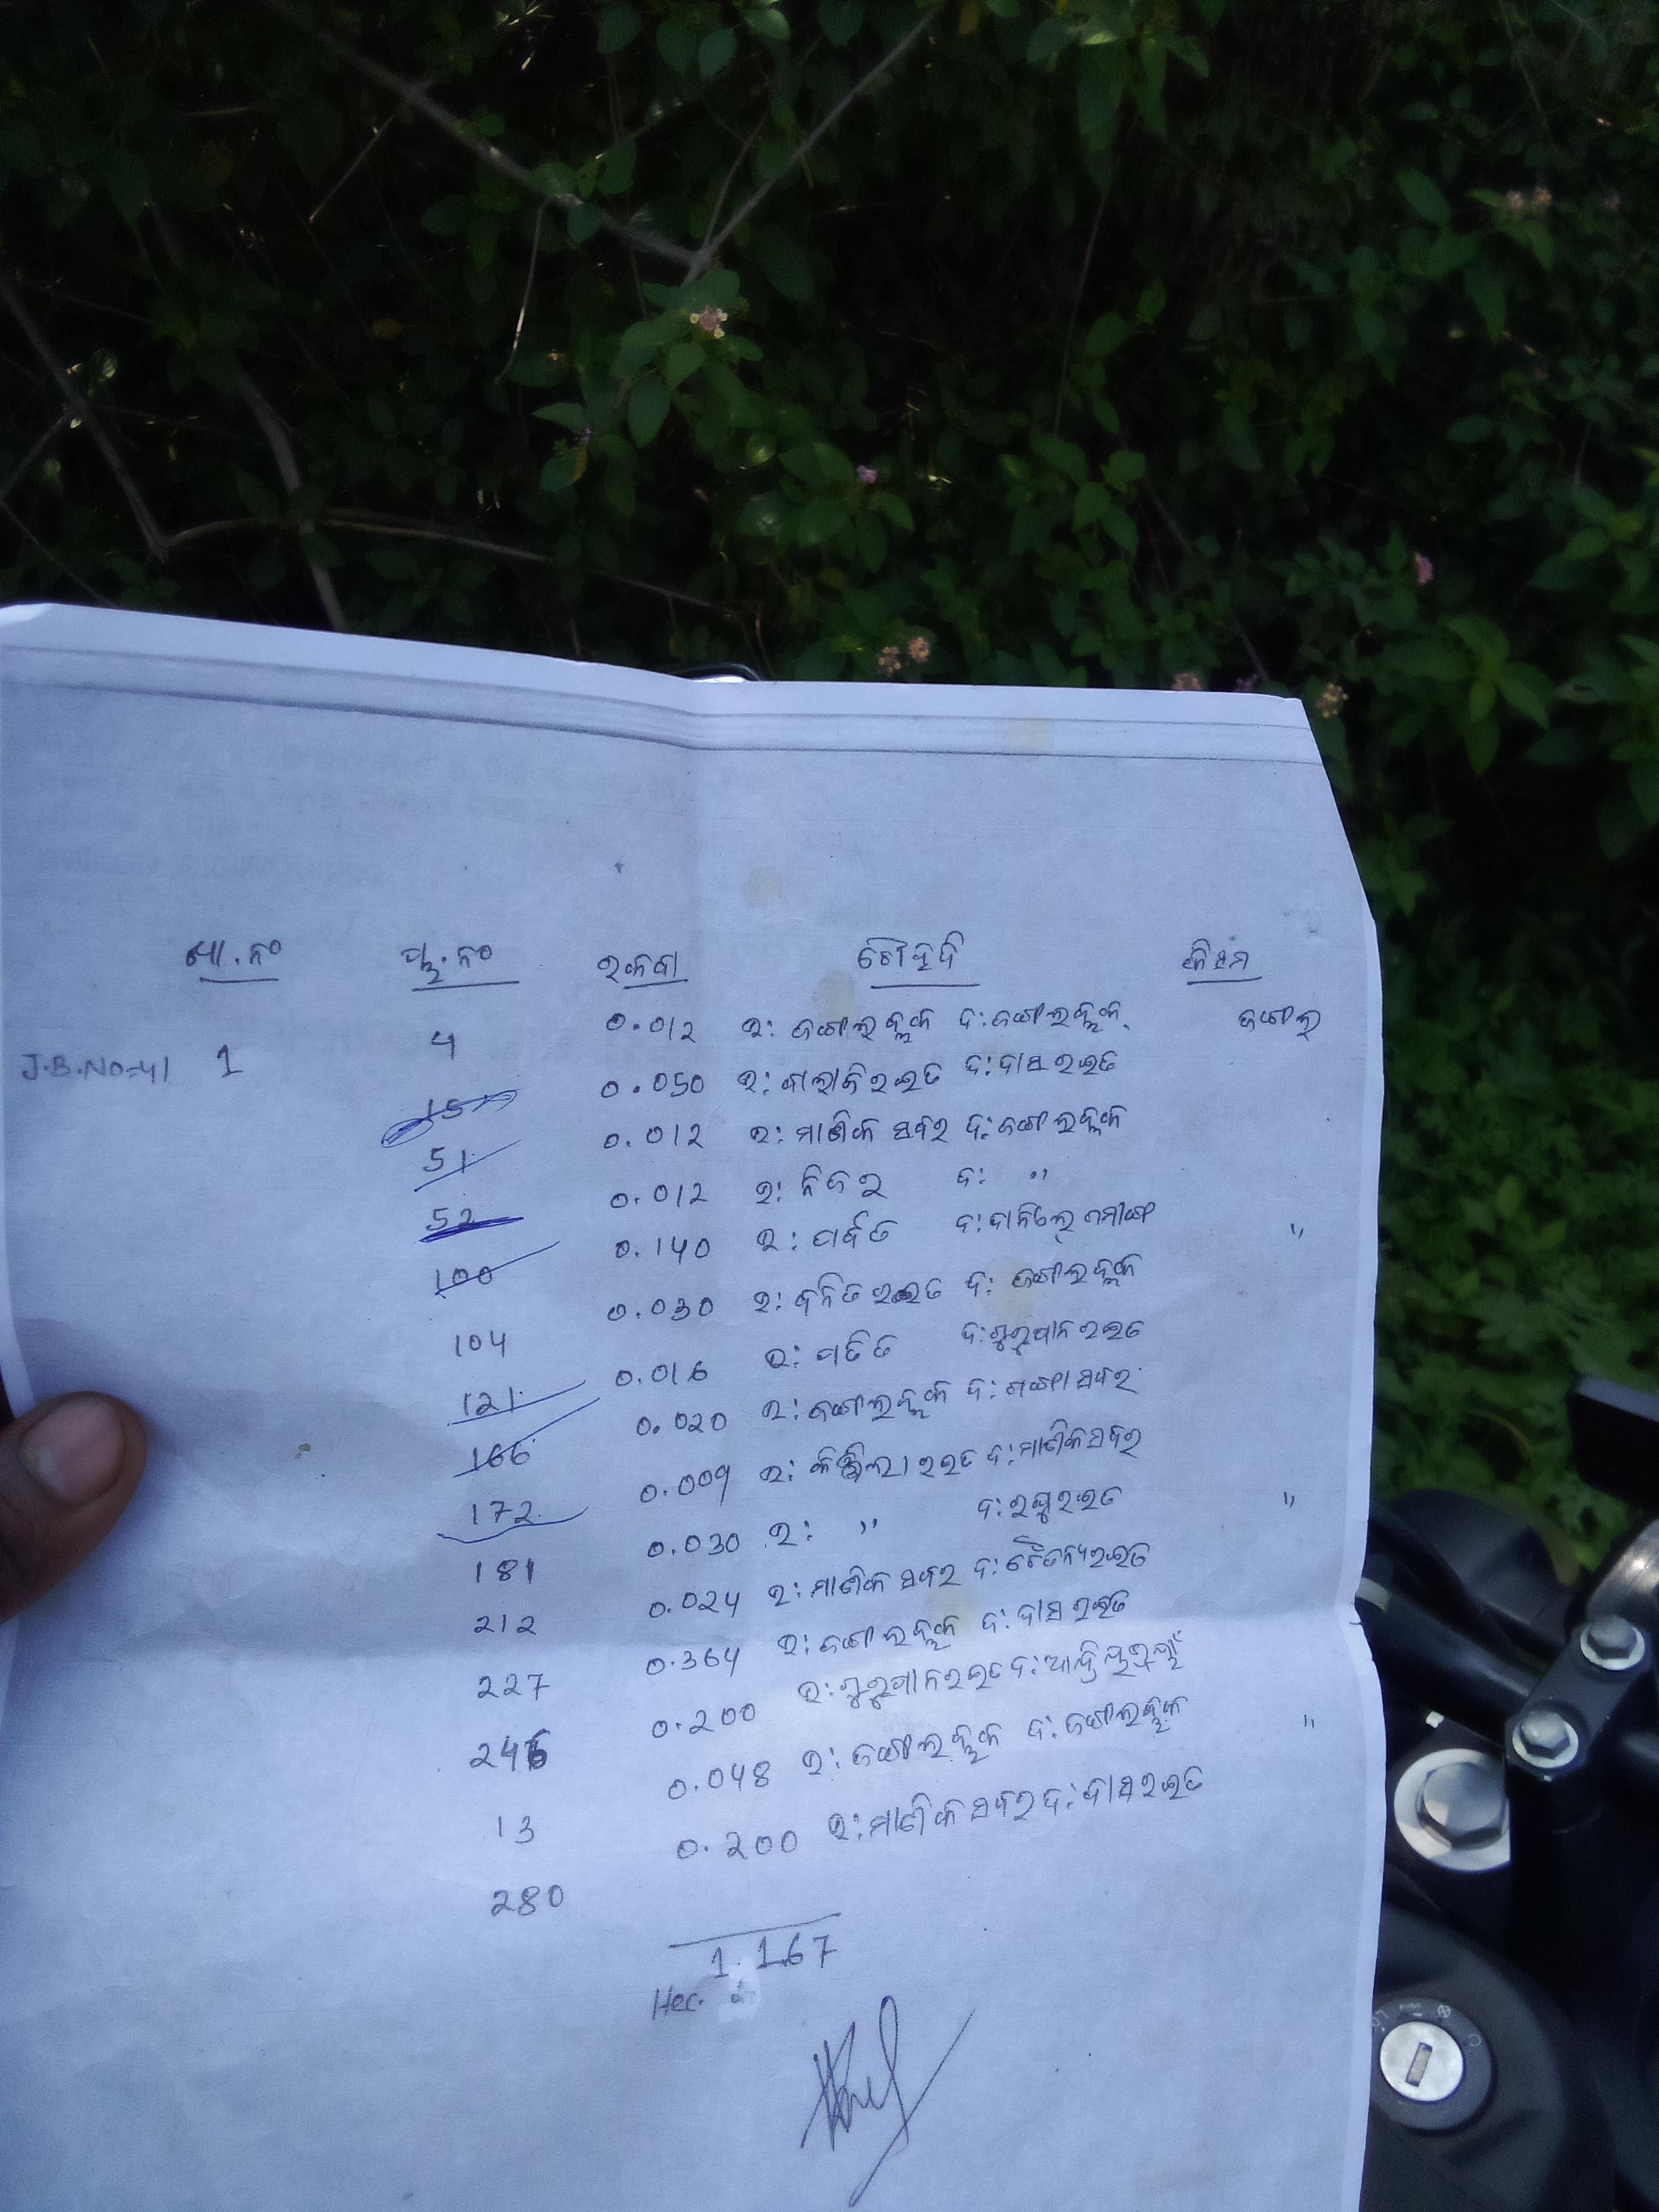 ଖା.ନଂ ପ୍ଲ.ନଂ ରକବା ଚୌହଦି କିସମ
J.B.NO-41 1 4 0.012 ଉ: ଜଙ୍ଗଲ ବ୍ଲକ ଦ: ଜଙ୍ଗଲ ବ୍ଲକ ଜଙ୍ଗଲ
151 0.050 ଉ: ରଇତ ଦ: ଦାସ ରଇତ
51 0.012 ଉ: ମାଣିକ ସବର ଦ: ଜଙ୍ଗଲ ବ୍ଲକ
52 0.012 ଉ: ନିଜର ଦ: "
100 0.140 ଉ: ପର୍ବତ ଦ: "
104 0.030 ଉ: ରଇତ ଦ: ଜଙ୍ଗଲ ବ୍ଲକ
121 0.016 ଉ: ପଡିତ ଦ: ରଇତ
166 0.020 ଉ: ଜଙ୍ଗଲ ବ୍ଲକ ଦ: ସବର
172 0.009 ଉ: ରଇତ ଦ: ମାଣିକ ସବର
181 0.030 ଉ: " ଦ: ରଘୁ ରଇତ "
212 0.024 ଉ: ମାଣିକ ସବର ଦ: ଚୈତନ୍ୟ ରଇତ
227 0.364 ଉ: ଜଙ୍ଗଲ ବ୍ଲକ ଦ: ଦାସ ରଇତ
246 0.200 ଉ: ରଇତ ଦ:
13 0.048 ଉ: ଜଙ୍ଗଲ ବ୍ଲକ ଦ: ଜଙ୍ଗଲ ବ୍ଲକ "
280 0.200 ଉ: ମାଣିକ ସବର ଦ: ଦାସ ରଇତ
1.167
Hec.